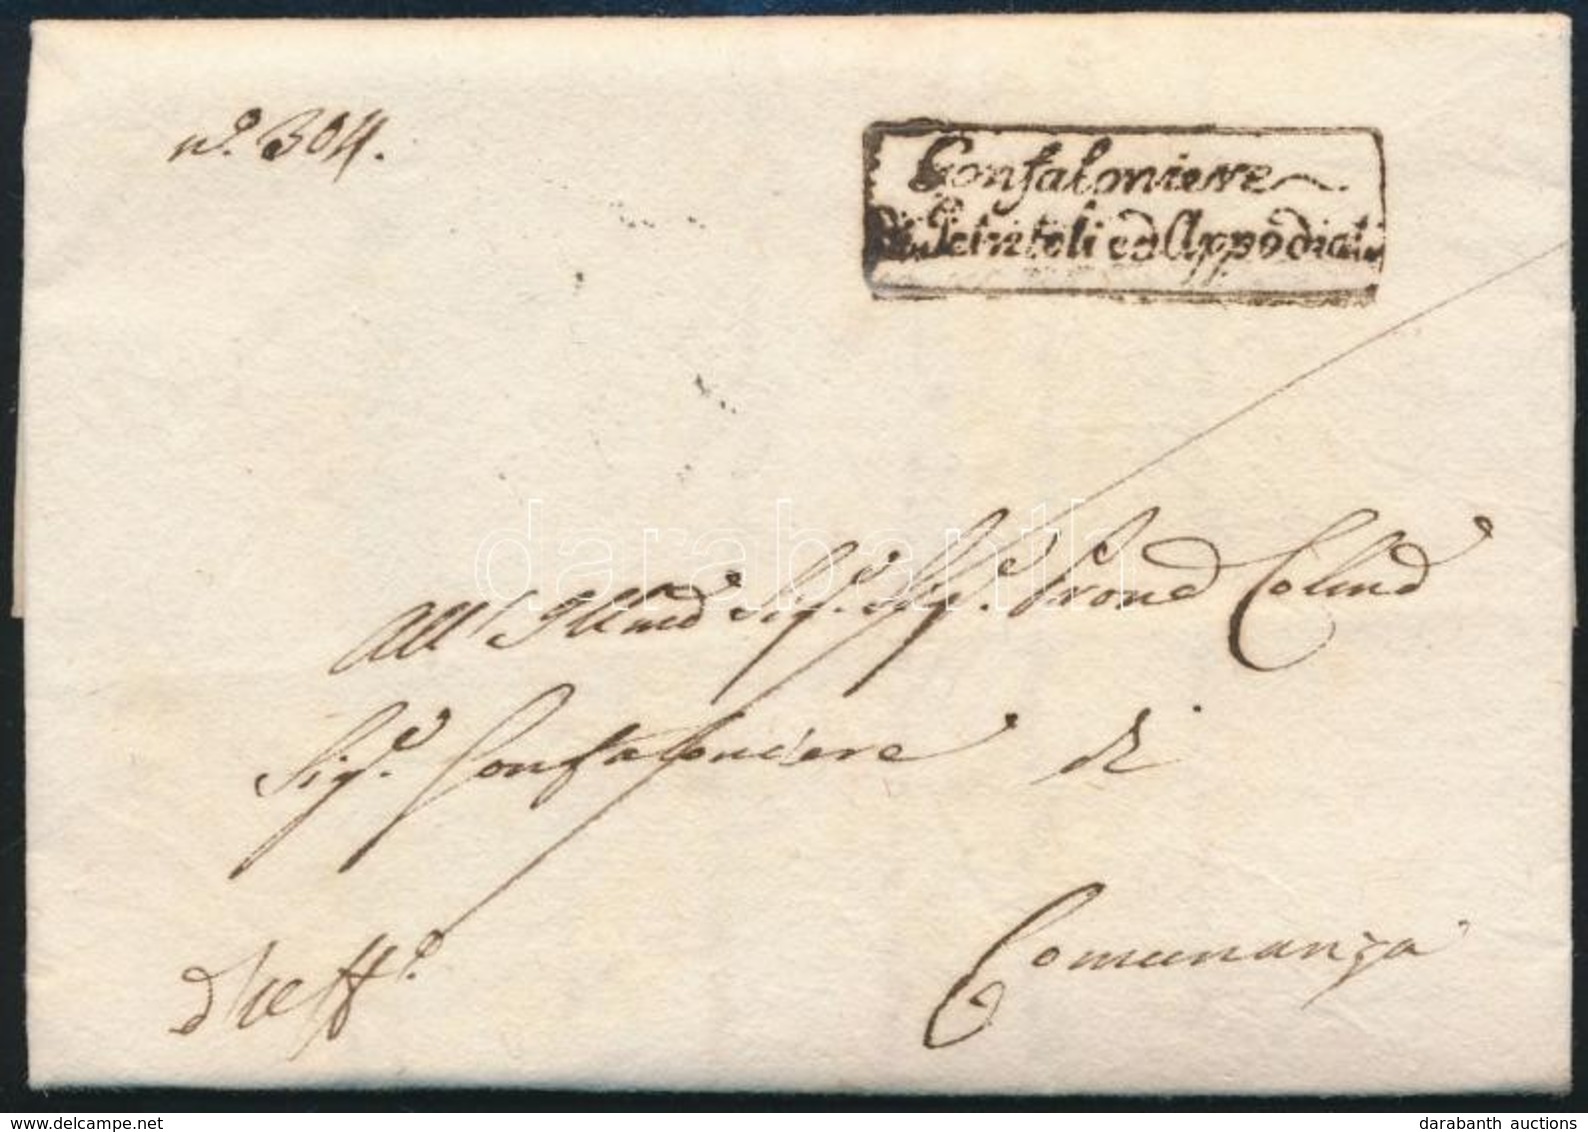 N.º 304.
Gonfaloniere
Di Petritoli ed Appodiati
darabanth
All' Illmo Sig.e Sig.e Prone Colmo
Sig.e Gonfaloniere di
Comunanza
d'uff.o
delcampe.net
darabanth auctions